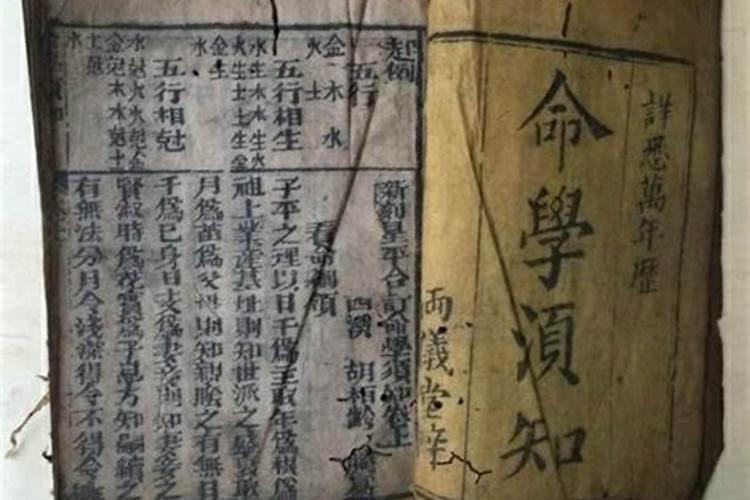 詳悉萬年歷
命學須知
兩儀堂梓
起例
五行
金木水
火土
五行相生
水生木木生火
火生土土生金
金生
水
五行相尅
水尅火火尅金
金尅木木尅土
土尅
水
新刻星平合訂命學須知卷上
西溪 胡栢齡
看命綱領
子平之理以日干爲主取年爲根爲
祖上業產基址則知世派之盛衰取
月爲苗爲父母則知親之有無日
干爲己身日支爲妻妾則知妻妾之
賢淑時爲花實爲子息方知嗣續之
有無法分月令淺深得令不得令